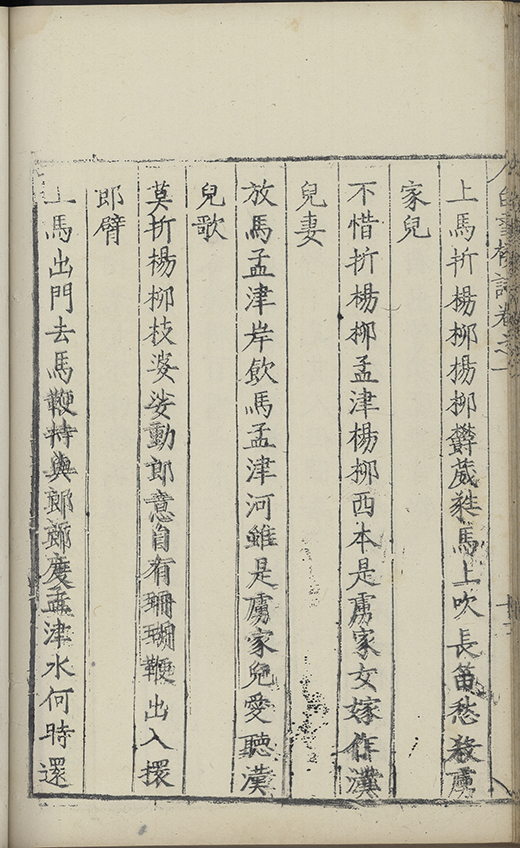 上馬折楊柳楊柳欝葳蕤馬上吹長笛愁殺虜
家兒
不惜折楊柳孟津楊柳西本是虜家女嫁作漢
兒妻
放馬孟津岸飲馬孟津河雖是虜家兒愛聽漢
兒歌
莫折楊柳枝婆娑動郎意自有珊瑚鞭出入擐
郎臂
上馬出門去馬鞭持與郎郎度孟津水何時還